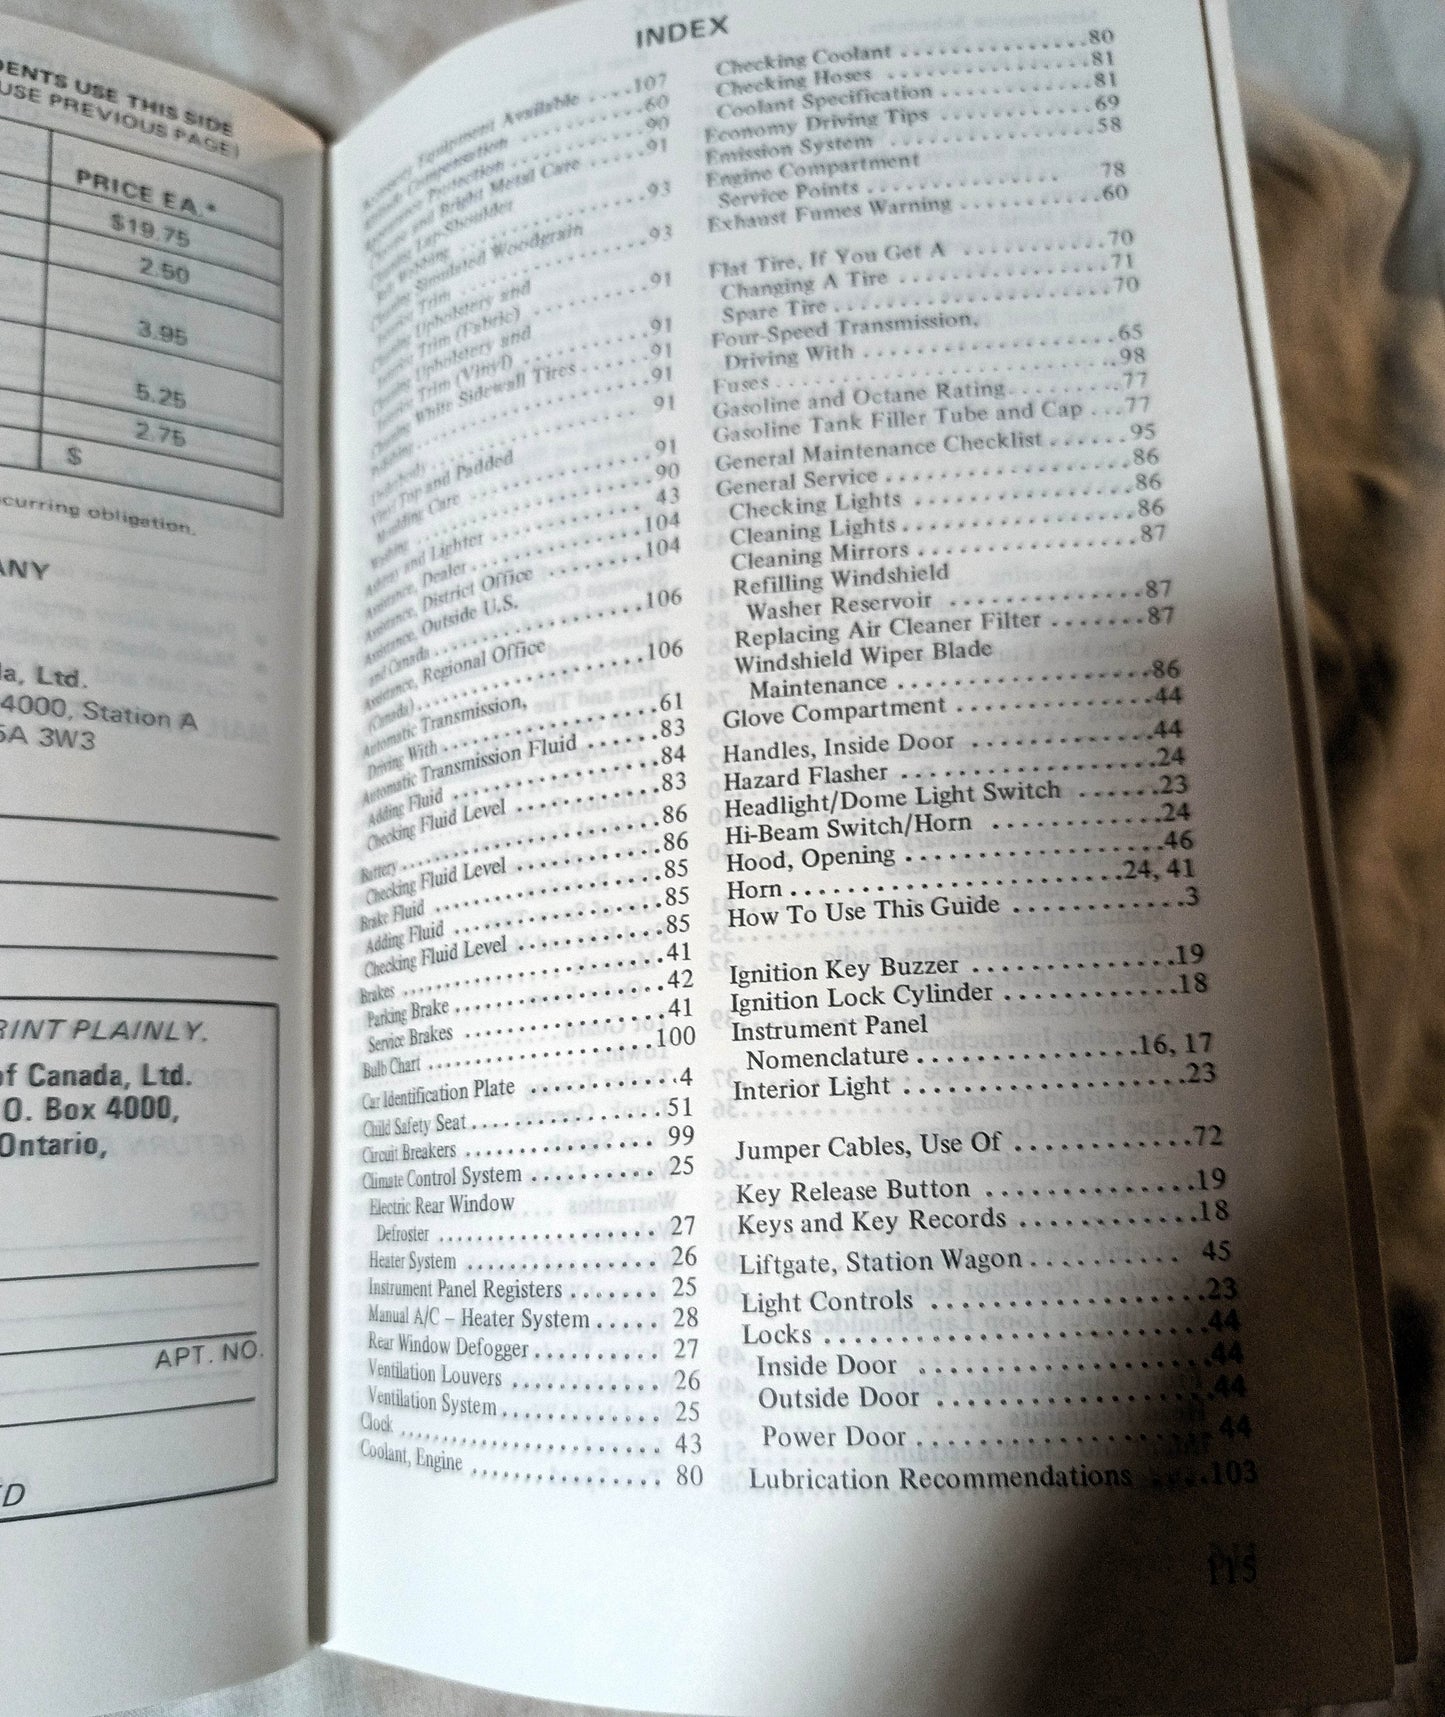 DENTS USE THIS SIDE
USE PREVIOUS PAGE)
PRICE EA.*
$19.75
2.50
3.95
5.25
2.75
$
curring obligation.
ANY
a, Ltd.
4000, Station A
5A 3W3
RINT PLAINLY.
of Canada, Ltd.
O. Box 4000,
Ontario,
APT. NO.
ED
INDEX
Accessory Equipment Available ....107
Altitude Compensation ..........60
Appearance Protection ..........90
Chrome and Bright Metal Care .....91
Cleaning Lap-Shoulder
Belt Webbing ..............93
Cleaning Simulated Woodgrain
Exterior Trim ..............93
Cleaning Upholstery and
Interior Trim (Fabric) .........91
Cleaning Upholstery and
Interior Trim (Vinyl) ..........91
Cleaning White Sidewall Tires ......91
Polishing ..................91
Underbody ................ 91
Vinyl Top and Padded
Moulding Care ..............91
Washing ..................90
Ashtray and Lighter ............ 43
Assistance, Dealer ............104
Assistance, District Office ........104
Assistance, Outside U.S.
and Canada ................106
Assistance, Regional Office
(Canada) .................106
Automatic Transmission,
Driving With ................61
Automatic Transmission Fluid ......83
Adding Fluid ................84
Checking Fluid Level ...........83
Battery ....................86
Checking Fluid Level ...........86
Brake Fluid .................85
Adding Fluid ................85
Checking Fluid Level ...........85
Brakes ....................41
Parking Brake ...............42
Service Brakes ...............41
Bulb Chart .................100
Car Identification Plate ..........4
Child Safety Seat ..............51
Circuit Breakers .............. 99
Climate Control System .......... 25
Electric Rear Window
Defroster .................. 27
Heater System .............. 26
Instrument Panel Registers ....... 25
Manual A/C – Heater System ..... 28
Rear Window Defogger .......... 27
Ventilation Louvers ............ 26
Ventilation System ............. 25
Clock ..................... 43
Coolant, Engine .............. 80
Checking Coolant ..............80
Checking Hoses ..............81
Coolant Specification ............81
Economy Driving Tips ...........69
Emission System ..............58
Engine Compartment
Service Points .............. 78
Exhaust Fumes Warning ..........60
Flat Tire, If You Get A ..........70
Changing A Tire ..............71
Spare Tire ..................70
Four-Speed Transmission,
Driving With .................65
Fuses .....................98
Gasoline and Octane Rating ........77
Gasoline Tank Filler Tube and Cap ...77
General Maintenance Checklist ......95
General Service ................86
Checking Lights ..............86
Cleaning Lights ...............86
Cleaning Mirrors ..............87
Refilling Windshield
Washer Reservoir .............87
Replacing Air Cleaner Filter .......87
Windshield Wiper Blade
Maintenance ................86
Glove Compartment .............44
Handles, Inside Door ............44
Hazard Flasher ................24
Headlight/Dome Light Switch ......23
Hi-Beam Switch/Horn ...........24
Hood, Opening ................46
Horn ....................24, 41
How To Use This Guide ...........3
Ignition Key Buzzer .............19
Ignition Lock Cylinder ...........18
Instrument Panel
Nomenclature ...............16, 17
Interior Light .................23
Jumper Cables, Use Of ...........72
Key Release Button .............19
Keys and Key Records ............18
Liftgate, Station Wagon .......... 45
Light Controls ................23
Locks .....................44
Inside Door ................44
Outside Door ...............44
Power Door ................44
Lubrication Recommendations ....103
115